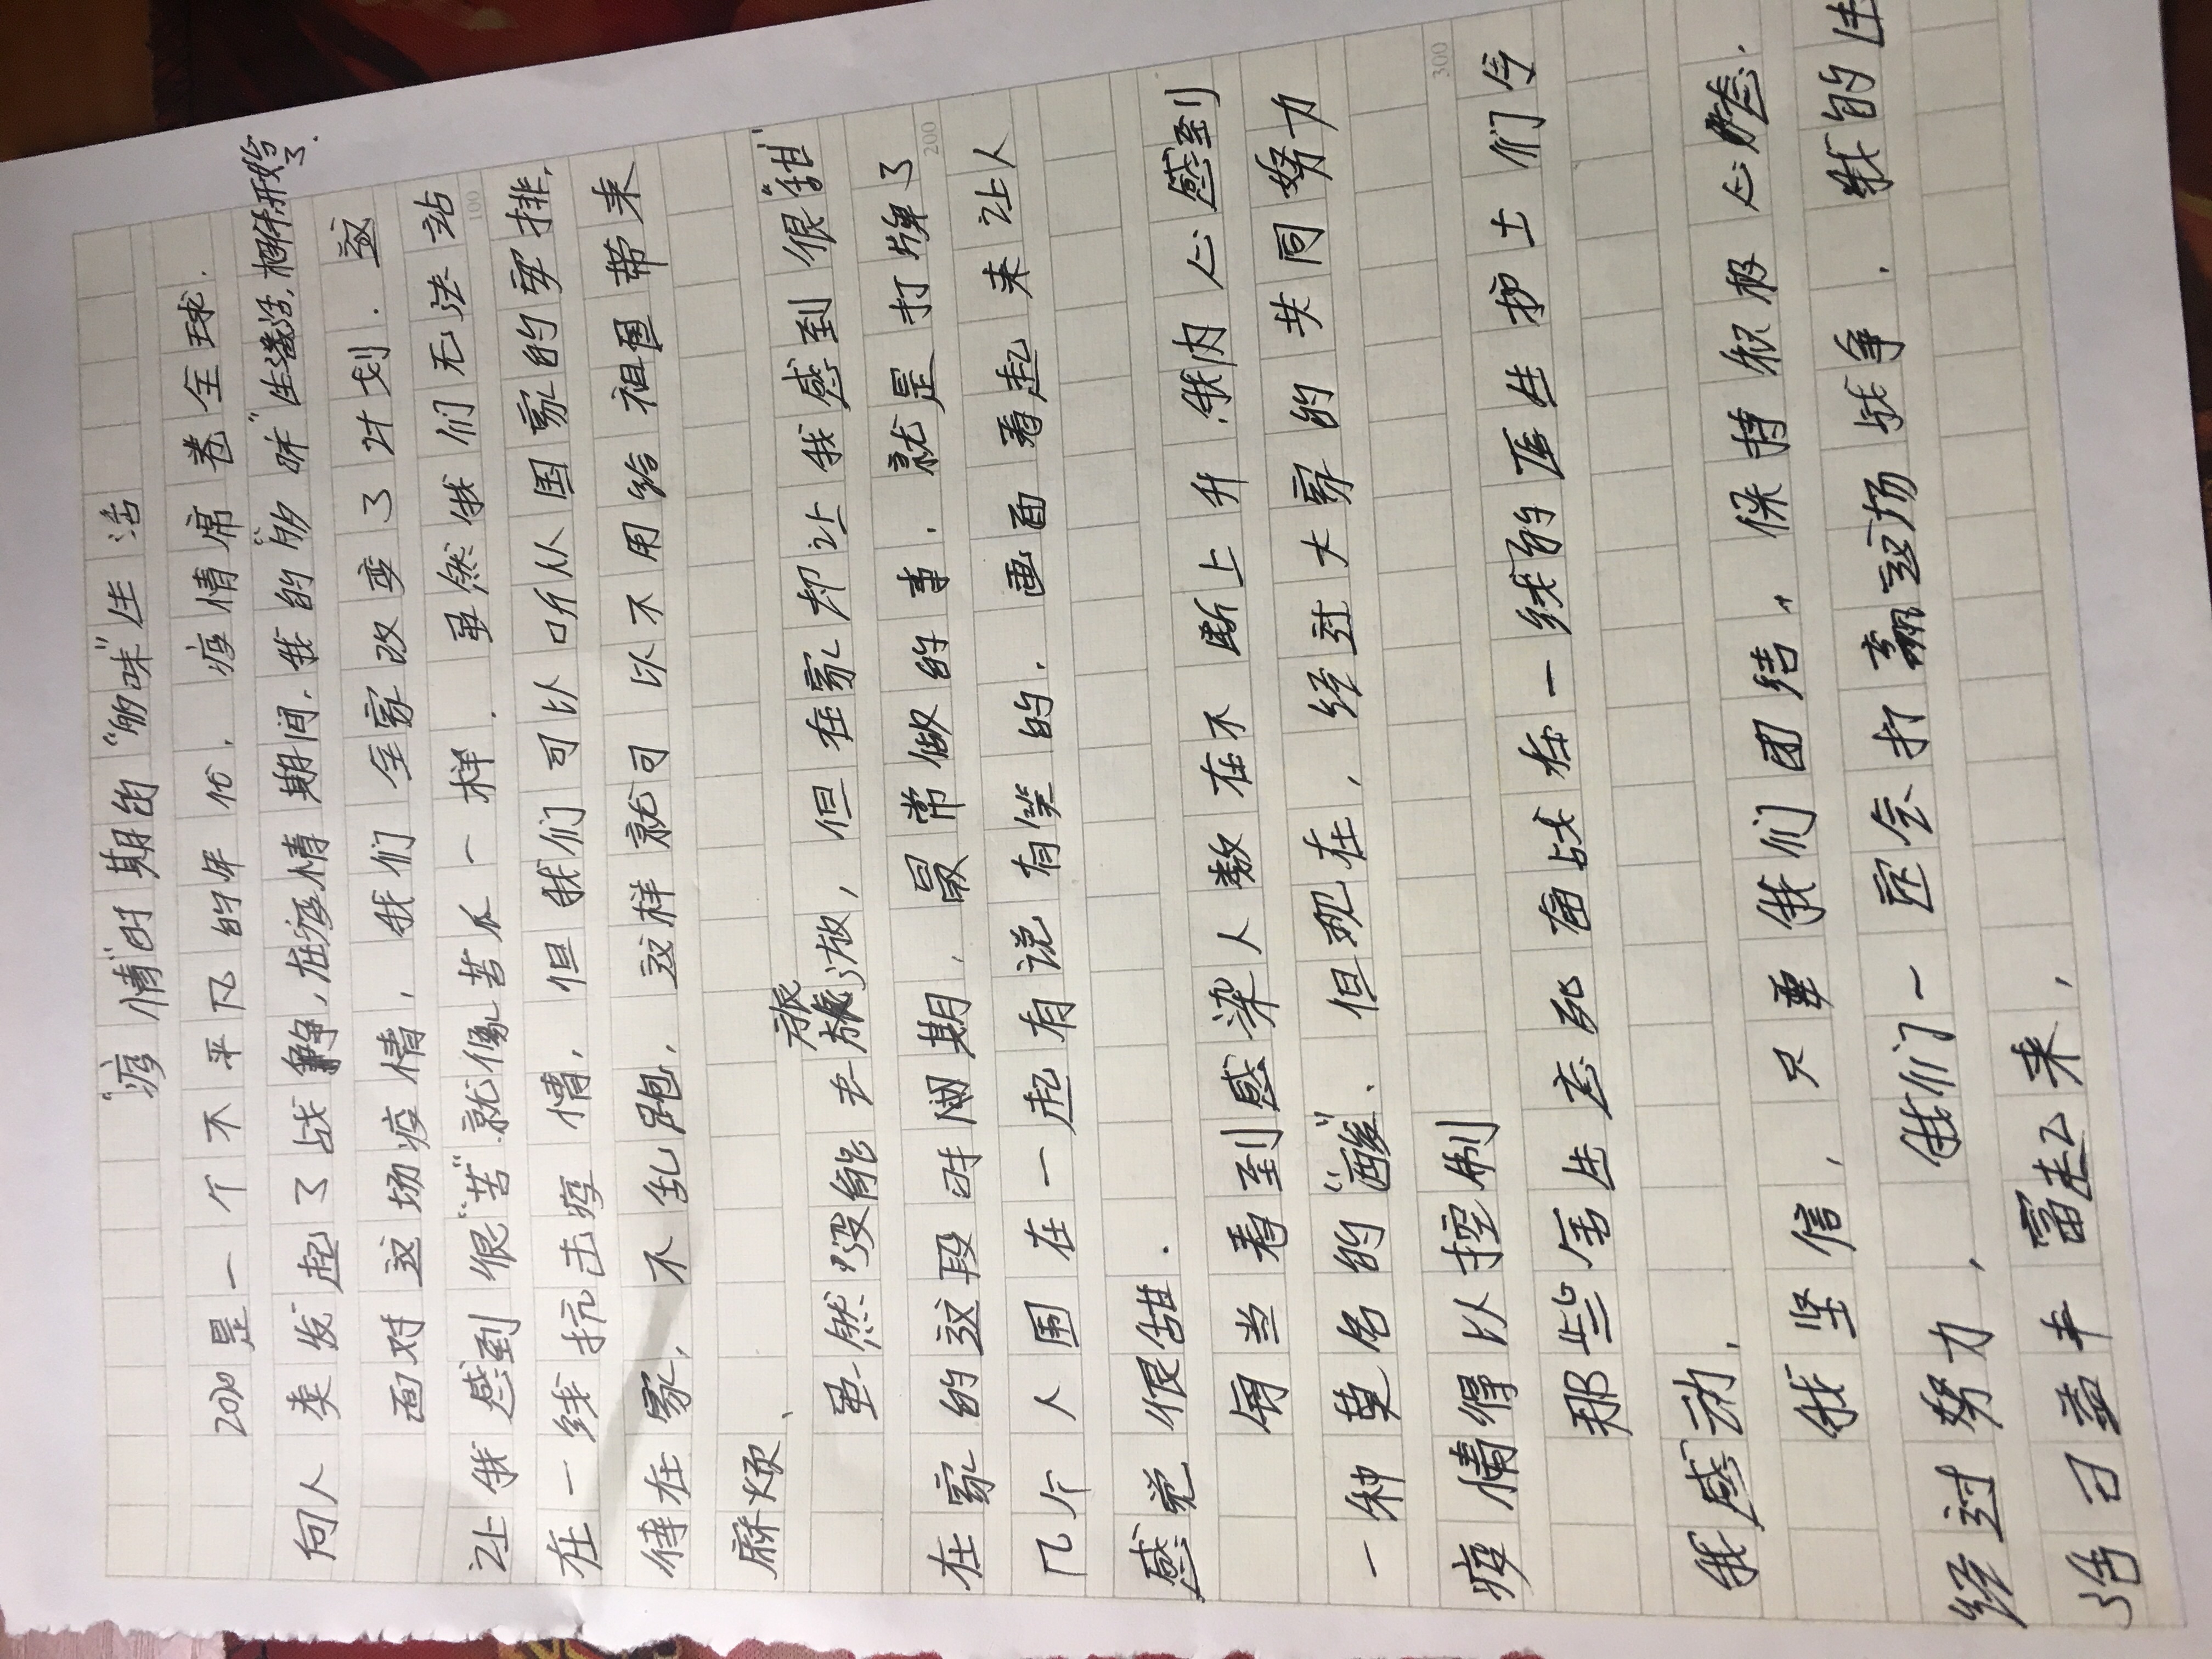 "疫情"时期的"多味"生活
2020是一个不平凡的年代,疫情席卷全球.
向人类发起了战争,在疫情期间,我的"多味"生活,相继开始了.
面对这场疫情,我们全家改变了计划.这
让我感到很"苦"就像苦瓜一样.虽然我们无法站
100
在一线抗击疫情,但我们可以听从国家的安排,
待在家,不乱跑,这样就可以不用给祖国带来
麻烦、
虽然没能去旅游,但在家却让我感到很"甜"
在家的这段时间期,最常做的事.就是打牌了
200
几个人围在一起有说有笑的.画面看起来让人
感觉很甜.
每当看到感染人数在不断上升.我内心感到
一种莫名的"酸"、但现在,经过大家的共同努力
疫情得以控制
300
那些舍生忘死奋战在一线的医生护士们令
我感动.
我坚信,只要我们团结,保持积极心态.
经过努力,我们一定会打赢这场战争.我的生
活日益丰富起来,